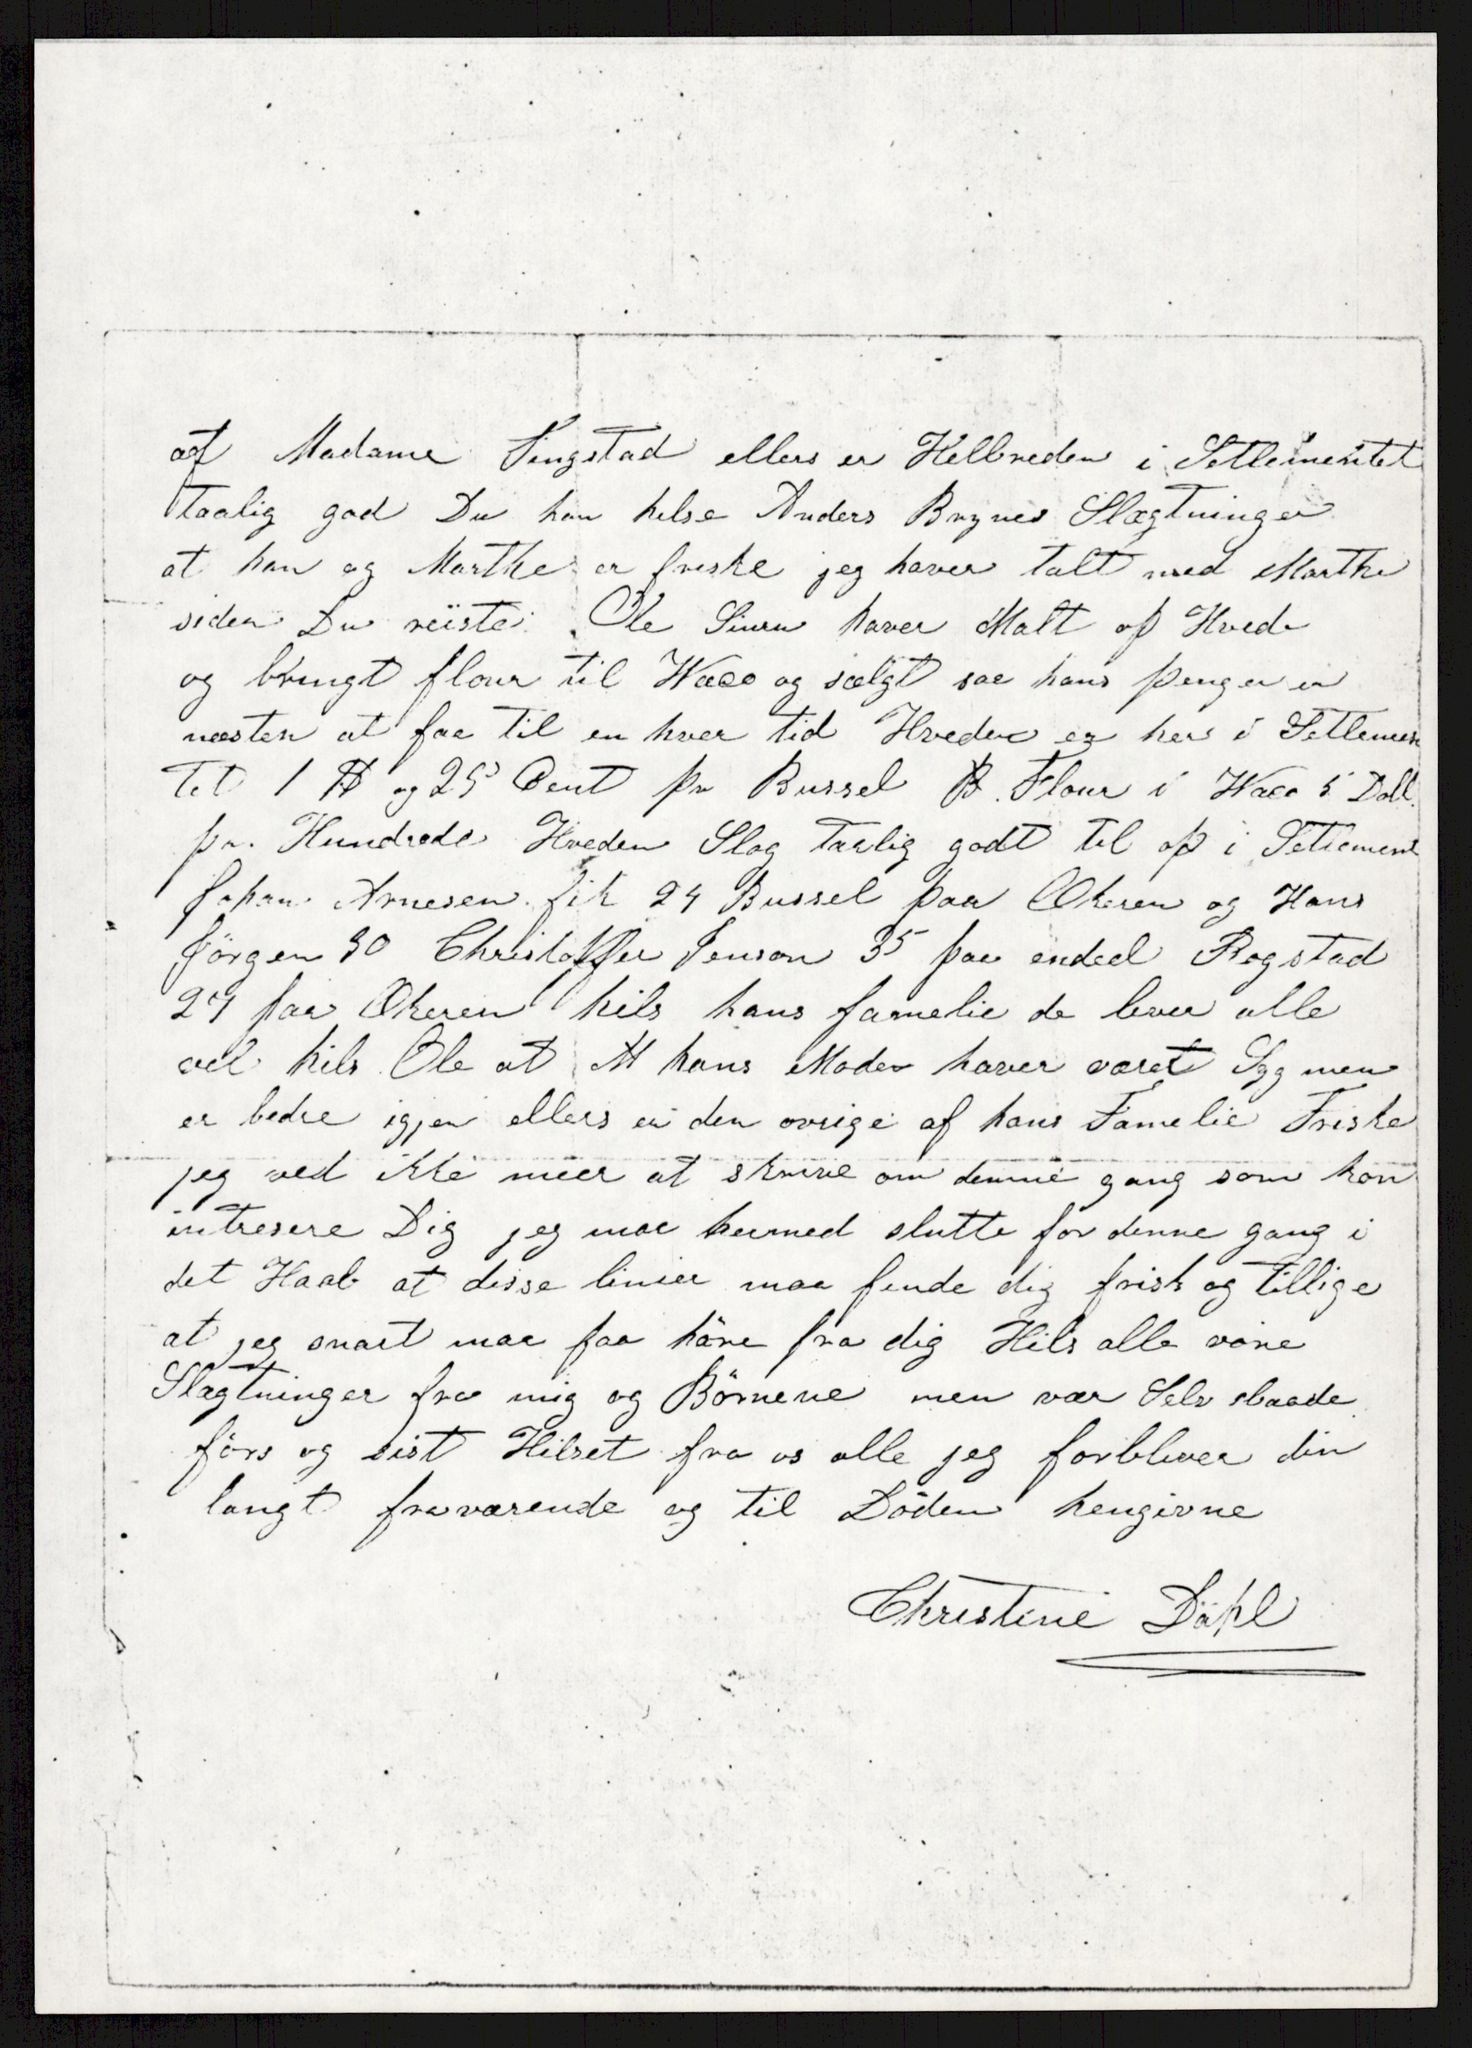 af Madame Ringstad ellers er Helbreden i Setlementet
taalig god Du kan helse Anders Brynes Slægtninger
at han og Marthe er friske jeg haver talt med Marthe
siden Du reiste. Ole Siurn haver Malt op Hvede
og bringt flour til Waco og sælgt saa hans penger er
næsten at faa til en hver tid Hveden er her i Setlemen
tet 1 $ og 25 Cent pr Bussel Flour i Waco 5 Doll.
pr. Hundrede Hveden Slog taalig godt til op i Setlement
Johan Arnesen fik 24 Bussel paa Ekeren og Hans
Jörgen 30 Christoffer Jenson 35 paa endeel Rogstad
27 paa Ekeren hils hans famelie de lever alle
vel hils Ole at hans Moder haver været Syg men
er bedre igjen ellers er den ovrige af hans Famelie Friske
jeg ved ikke meer at skrive om denne gang som kan
intresere Dig jeg maa hermed slutte for denne gang i
det Haab at disse linier maa finde dig frisk og tillige
at jeg snart maa faa höre fra dig Hils alle vore
Slægtninger fra mig og Börnene men vær Selv baade
förs og sist Hilset fra os alle jeg forbliver din
langt fraværende og til Döden hengivne
Christine Dahl